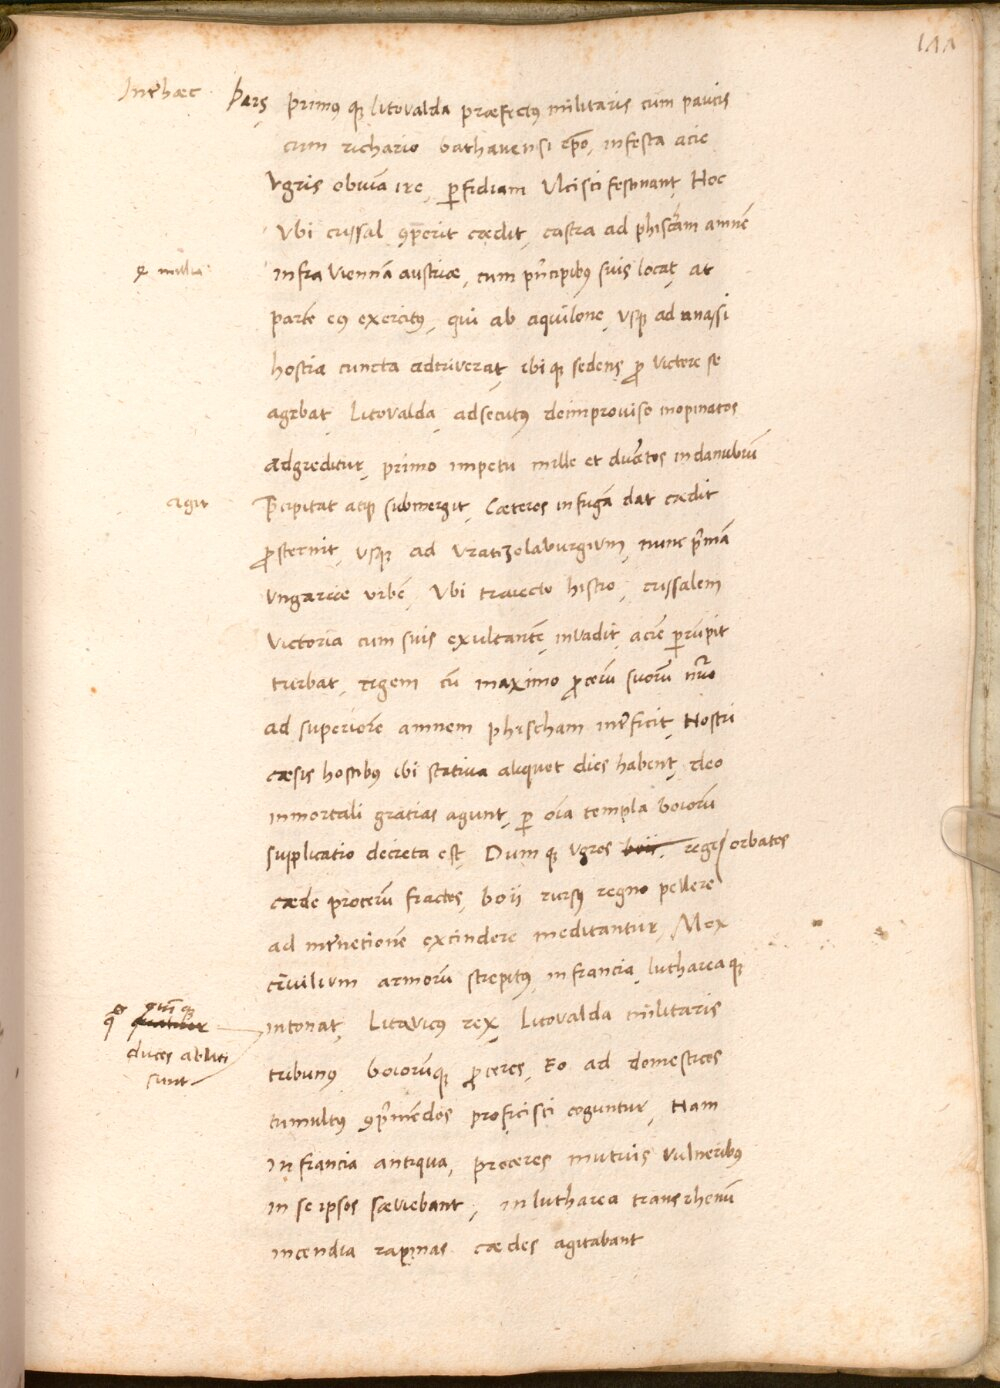 111
Inthæc pars primus que litovalda præfectus militaris cum paucis
cum richario bathavensi epo, infesta acie
Vgris obviam ire, perfidiam Vlcisci festinant, Hoc
Vbi crussal comperit cædit, castra ad phischam amnem
4 millia
infra Viennam austriæ, cum principibus suis locat, at
parte eius exercitus, qui ab aquilone, vsque ad anassi
hostia cuncta adtriverat, ibique sedens pro victore se
agebat, Litovalda, adsecutus deimproviso inopinatos
adgreditur, primo impetu mille et ducentos indanubium
agit
præcipitat atque submergit, Cæteros infugam dat cædit
prosternit, vsque ad vratizolaburgium, nunc primam
vngariæ urbem, Vbi traiecto histro, crussalem
victoria cum suis exultantem, invadit, aciem perrumpit
turbat, regem cum maximo procerum suorum numero
ad superiorem amnem phischam interficit, Nostri
cæsis hostibus ibi stativa aliquot dies habent, deo
inmortali gratias agunt, per omnia templa boiorum
supplicatio decreta est, Dumque vgros boii, regis orbatos
cæde procerum fractos, boii rursus regno pellere
ad internetionem excindere meditantur, Mox
civilium armorum strepitus, infrancia, lutharea que
quinque
duces abliti
sunt
intonat, Litavicus rex, Litovalda militaris
tribunus, boiorumque proceres, Eo ad domesticos
tumultus comprimendos proficisci coguntur, Nam
in francia antiqua, proceres mutuis vulneribus
in se ipsos sæviebant, in lutharea transrhenum
incendia rapinas cædes agitabant